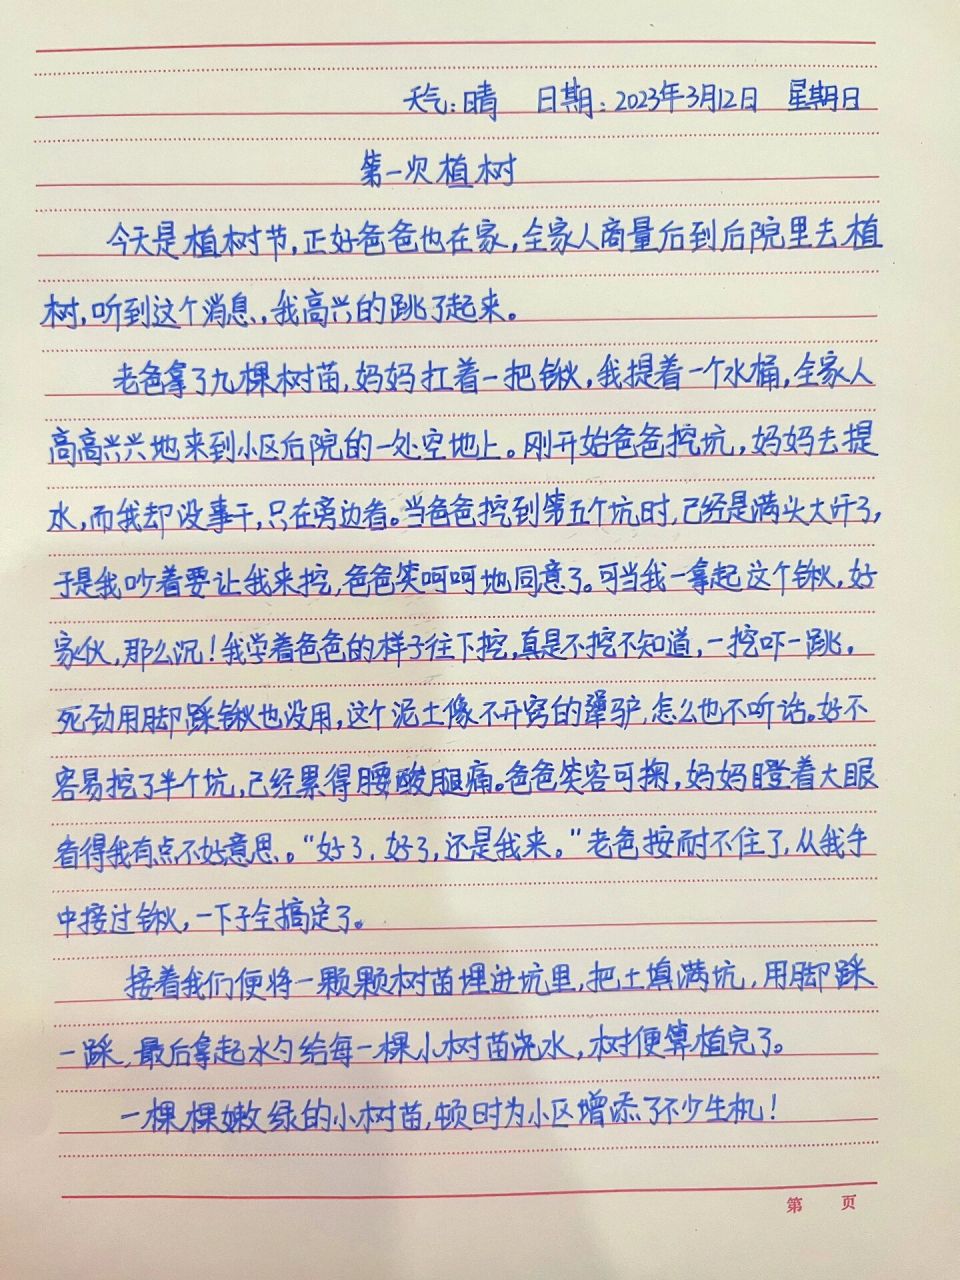 天气：晴 日期：2023年3月12日 星期日
第一次植树
今天是植树节，正好爸爸也在家，全家人商量后到后院里去植
树，听到这个消息，我高兴的跳了起来。
老爸拿了九棵树苗，妈妈扛着一把锹，我提着一个水桶，全家人
高高兴兴地来到小区后院的一处空地上。刚开始爸爸挖坑，妈妈去提
水，而我却没事干，只在旁边看。当爸爸挖到第五个坑时，已经是满头大汗了，
于是我吵着要让我来挖，爸爸笑呵呵地同意了。可当我一拿起这个锹，好
家伙，那么沉！我学着爸爸的样子往下挖，真是不挖不知道，一挖吓一跳，
死劲用脚踩锹也没用，这个泥土像不开窍的犟驴，怎么也不听话。好不
容易挖了半个坑，已经累得腰酸腿痛。爸爸笑容可掬，妈妈瞪着大眼
看得我有点不好意思。“好了，好了，还是我来。”老爸按耐不住了，从我手
中接过锹，一下子全搞定了。
接着我们便将一颗颗树苗埋进坑里，把土填满坑，用脚踩
一踩，最后拿起水勺给每一棵小树苗浇水，树便算植完了。
一棵棵嫩绿的小树苗，顿时为小区增添了不少生机！
第 页